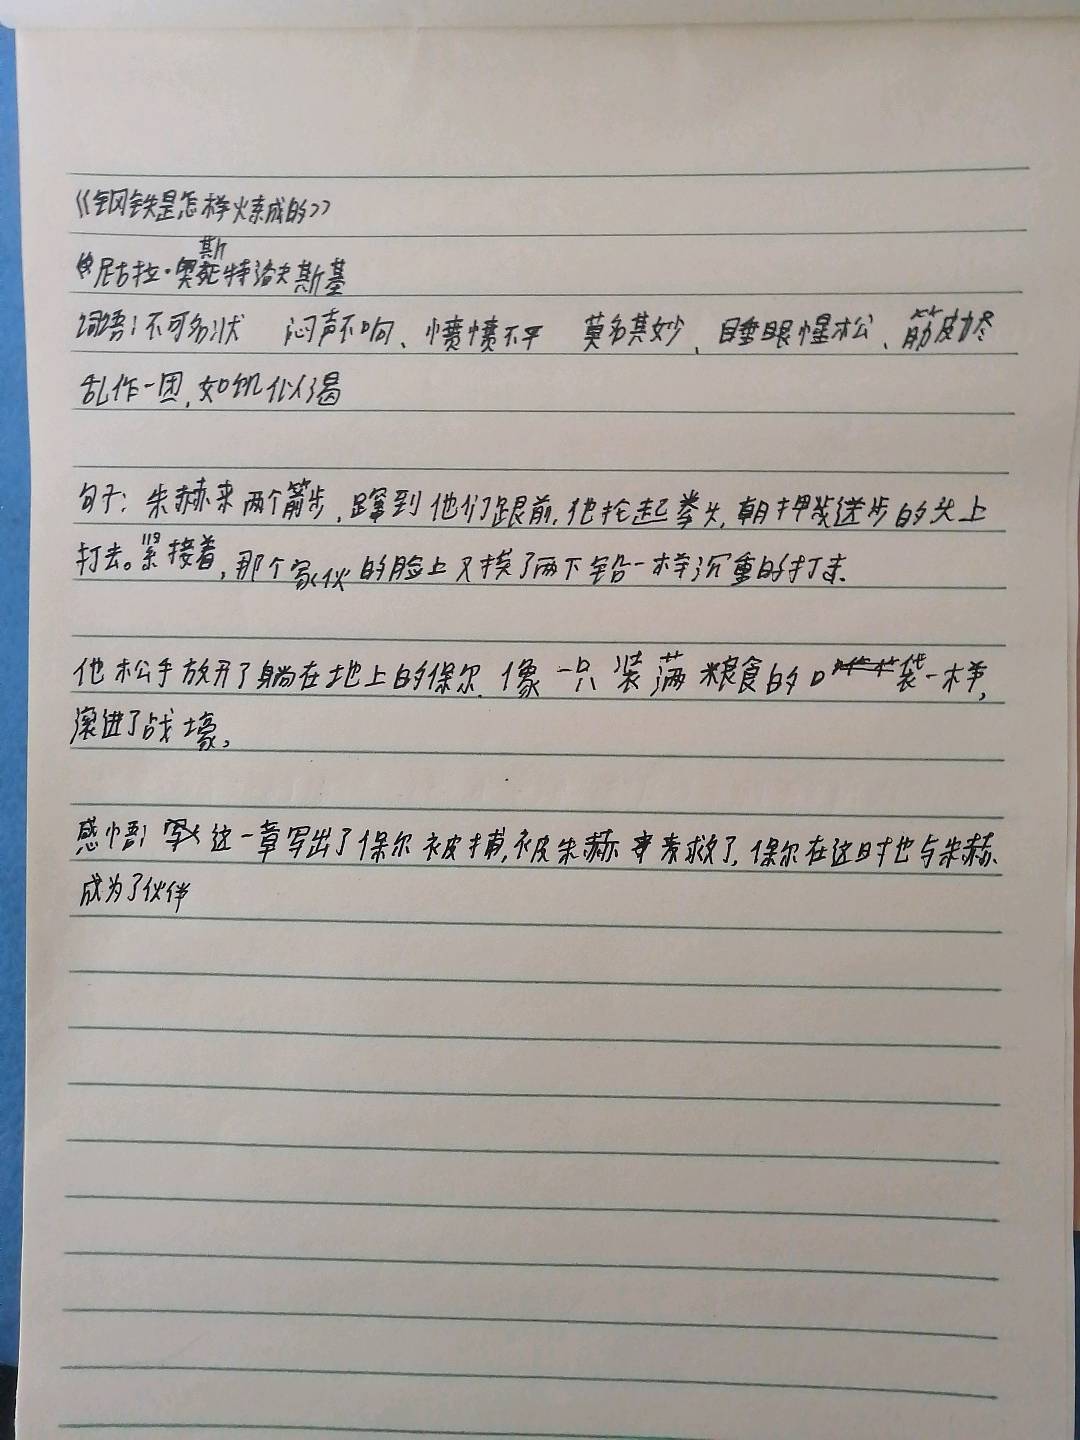 《钢铁是怎样炼成的》
尼古拉·奥斯特洛夫斯基
词语：不可名状 闷声不响、愤愤不平 莫名其妙、睡眼惺松、筋皮力尽
乱作一团，如饥似渴
句子：朱赫来两个箭步，蹿到他们跟前，他抡起拳头，朝押送步的头上
打去。紧接着，那个家伙的脸上又挨了两下铅一样沉重的打击.
他松手放开了躺在地上的保尔，像一只装满粮食的口袋一样，
滚进了战壕，
感悟：这一章写出了保尔被捕，被朱赫来救了，保尔在这时也与朱赫
成为了伙伴